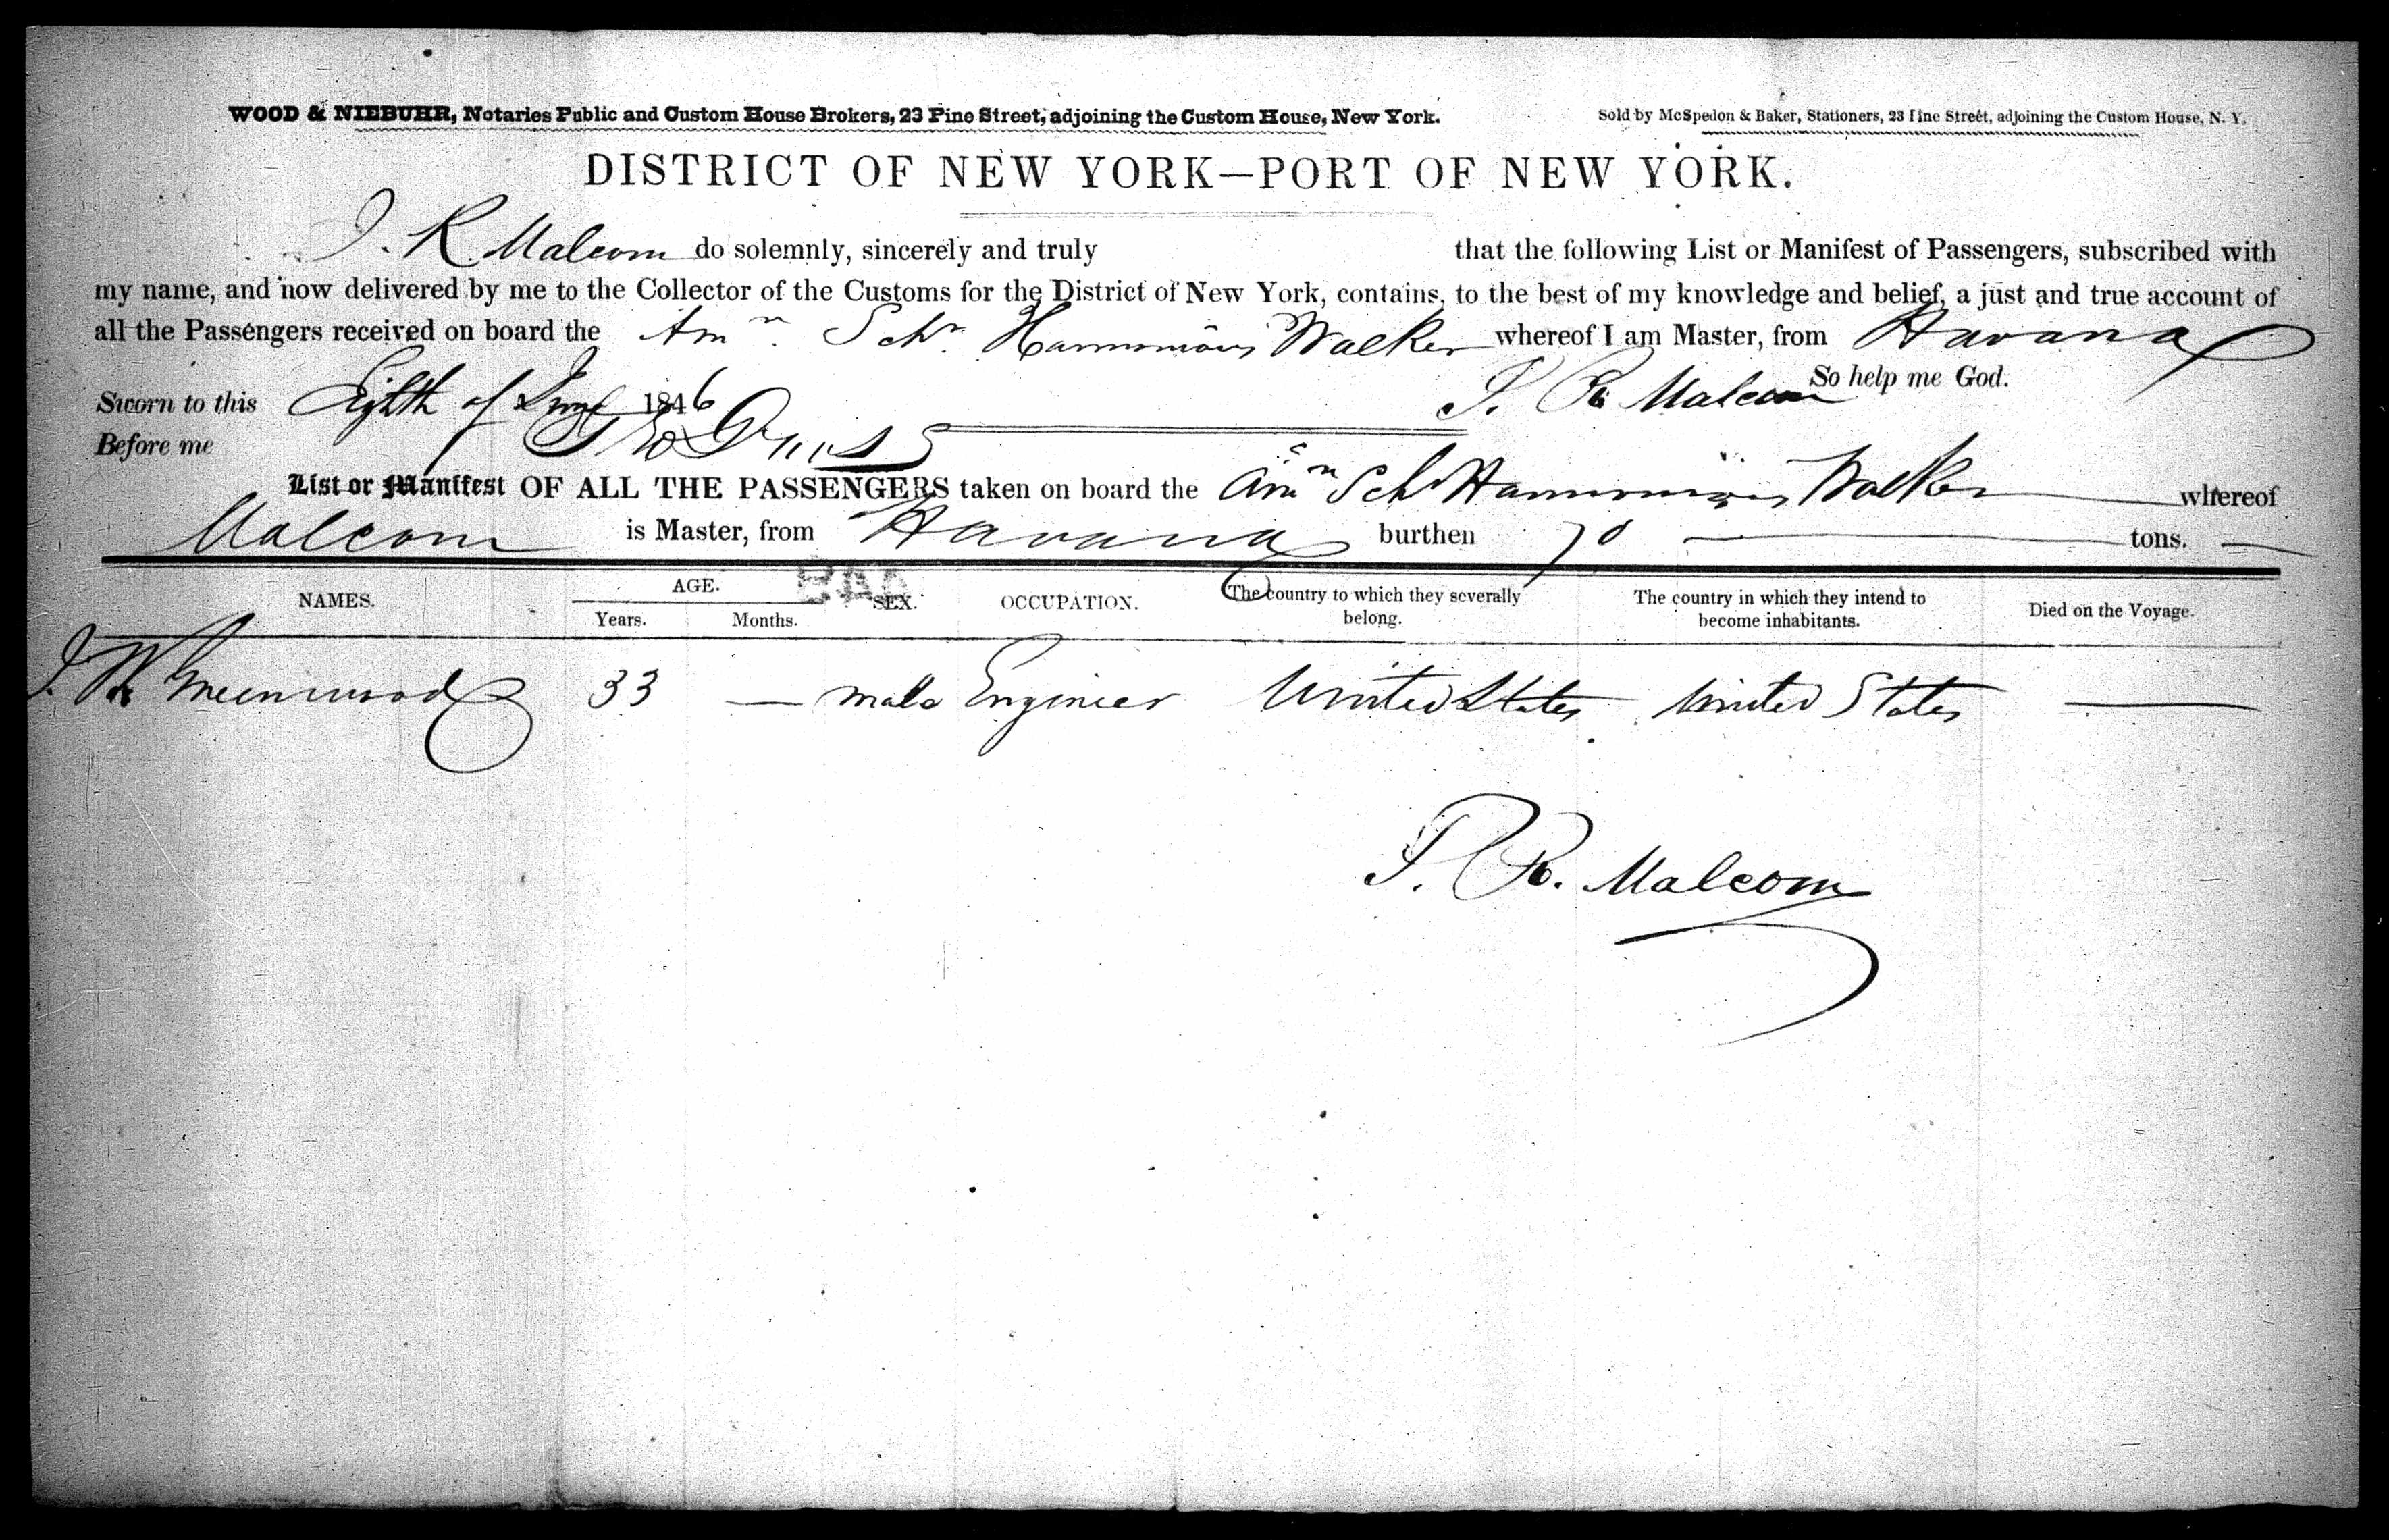 WOOD & NIEBUHR, Notaries Public and Custom House Brokers, 23 Pine Street, adjoining the Custom House, New York.
Sold by McSpedon & Baker, Stationers, 23 Pine Street, adjoining the Custom House, N. Y.
DISTRICT OF NEW YORK—PORT OF NEW YORK.
R Malcom do solemnly, sincerely and truly that the following List or Manifest of Passengers, subscribed with
my name, and now delivered by me to the Collector of the Customs for the District of New York, contains, to the best of my knowledge and belief, a just and true account of
all the Passengers received on board the Amn Schr Walker whereof I am Master, from Havana
So help me God.
Sworn to this Eighth of 1846 R Malcom
Before me
List or Manifest OF ALL THE PASSENGERS taken on board the Amn Schr Walker whereof
Malcom is Master, from Havana burthen 70 tons.
NAMES. AGE. SEX. OCCUPATION. The country to which they severally belong. The country in which they intend to become inhabitants. Died on the Voyage.
Years. Months.
Greenwood 33 — male Engineer United States United States —
R. Malcom